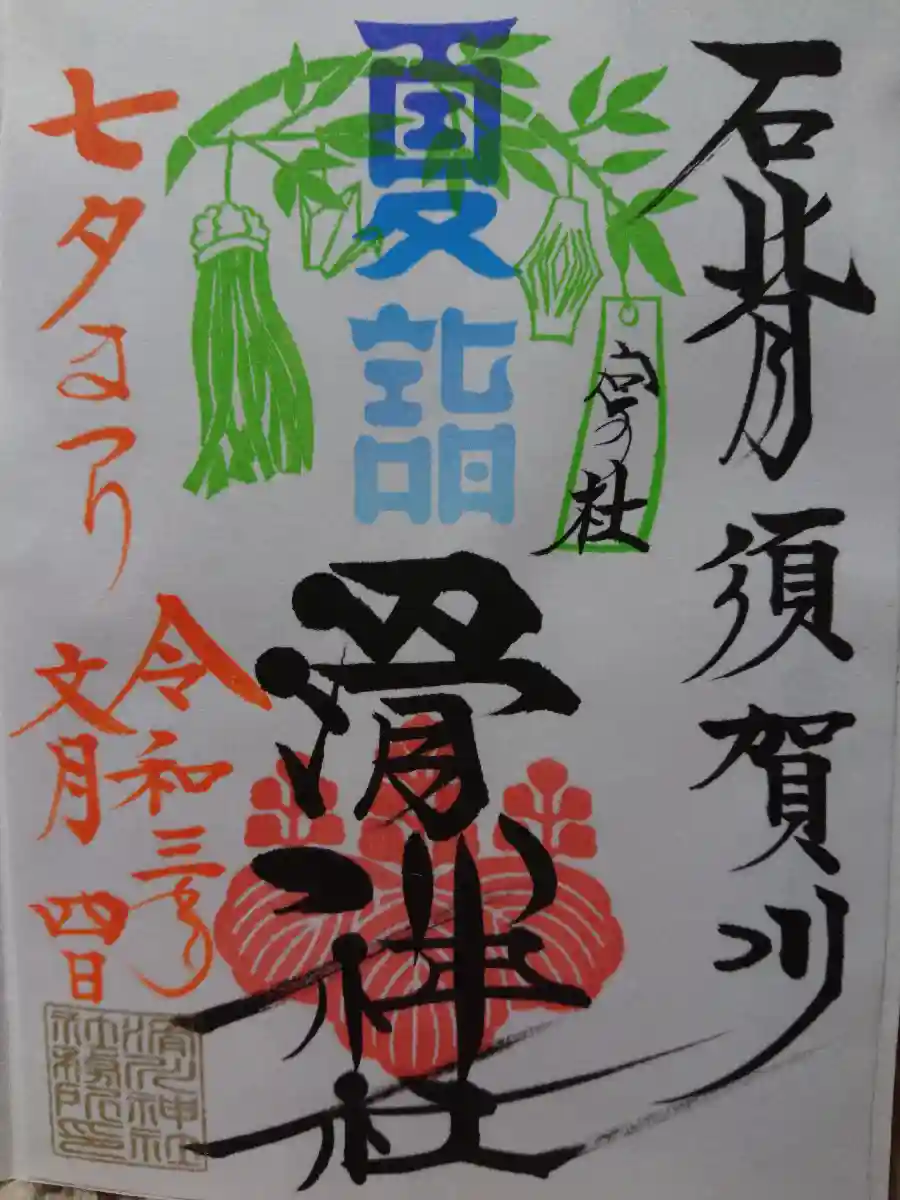 石背須賀川
夏詣
宮の杜
滑川神社
七夕まつり
令和三年
文月四日
滑川神社
社務所印